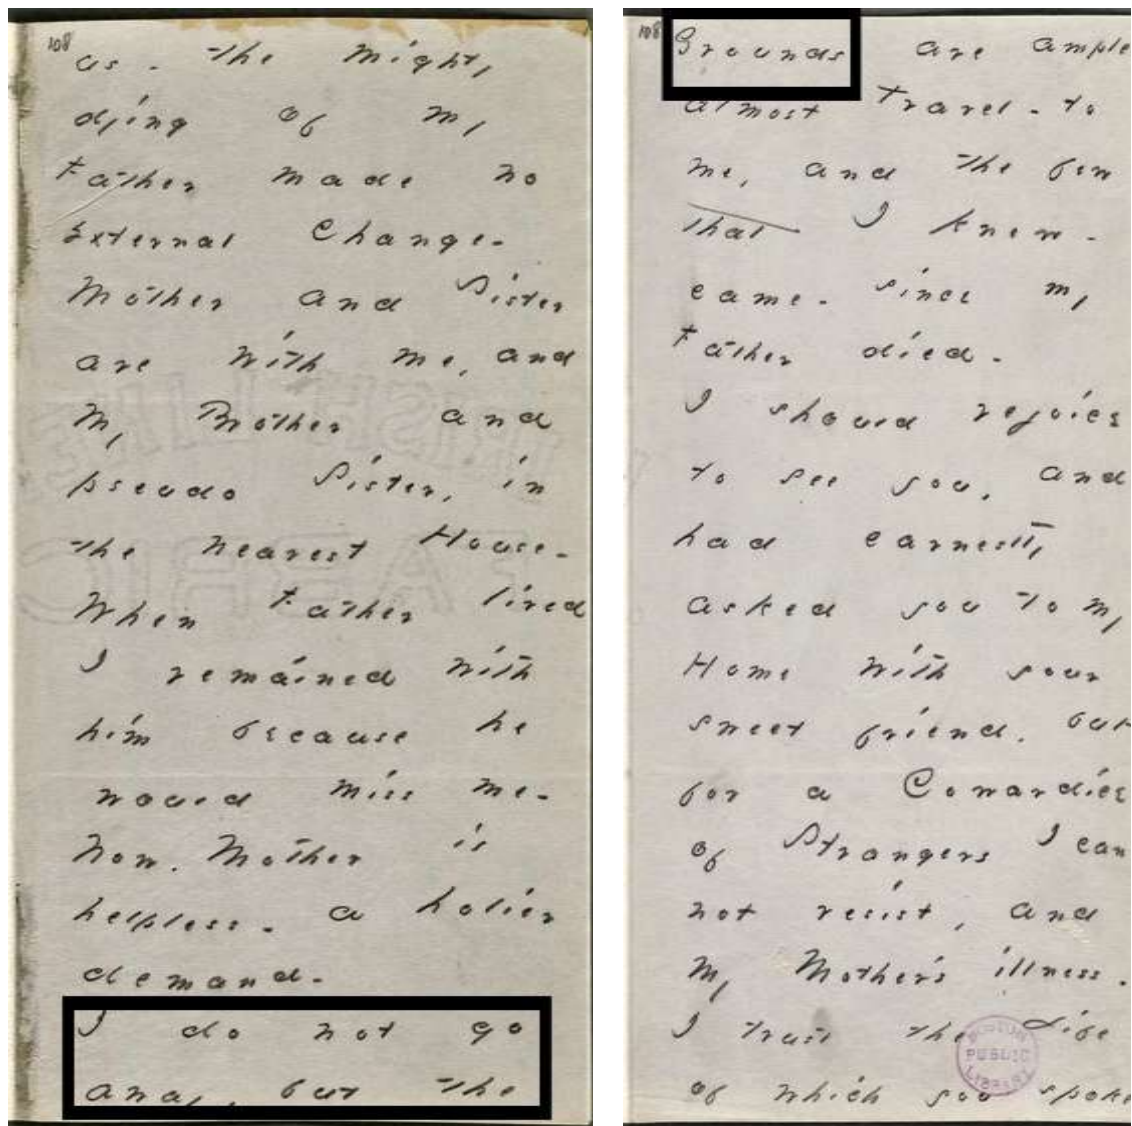 108
us - the mighty
dying of my
Father made no
External Change -
Mother and Sister
are with me, and
My Brother and
pseudo Sister, in
the nearest House -
When Father lived
I remained with
him because he
would miss me -
Now, Mother is
helpless - a holier
demand -
I do not go
away, but the
108
Grounds are ample -
almost travel - to
me, and the few
that I knew -
came - since my
Father died -
I should rejoice
to see you, and
had earnestly
asked you to my
Home with your
sweet friend, but
for a Cowardice
of Strangers I can
not resist, and
my Mother's illness -
I trust the Life
of which you spoke
BOSTON PUBLIC LIBRARY